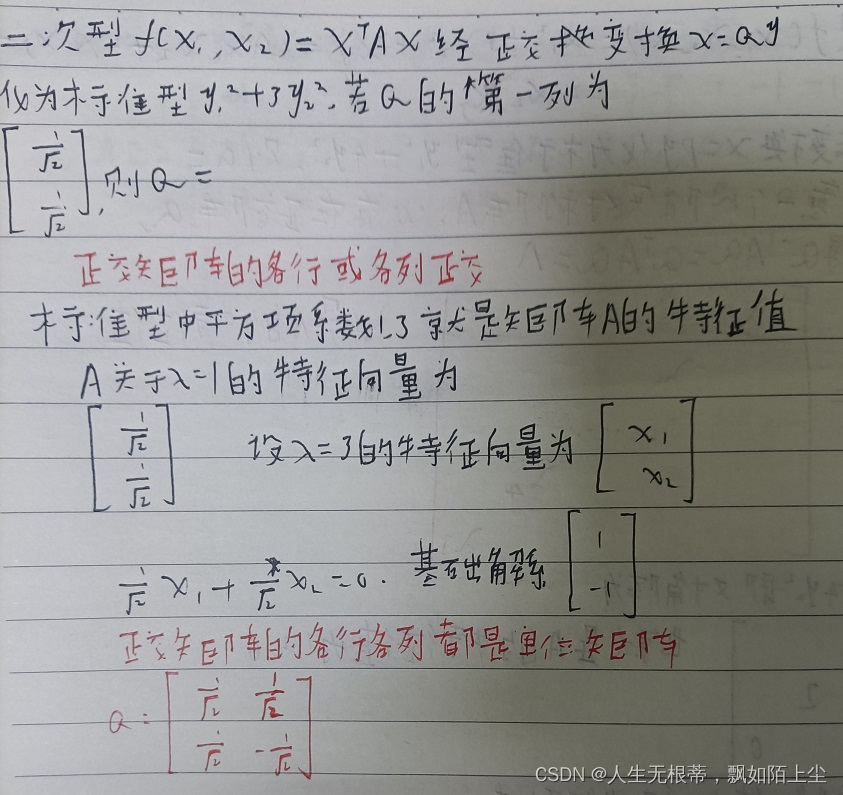 二次型 f(x₁,x₂)=XᵀAX 经正交变换 x=Qy
化为标准型 y₁²+3y₂²,若Q的第一列为
[1/√2
1/√2],则Q=
正交矩阵的各行或各列正交
标准型中平方项系数1,3就是矩阵A的特征值
A关于λ=1的特征向量为
[1/√2
1/√2] 设λ=3的特征向量为 [x₁
x₂]
1/√2 x₁ + 1/√2 x₂ =0. 基础解系 [1
-1]
正交矩阵的各行各列都是单位矩阵
Q=[1/√2 1/√2
1/√2 -1/√2]
CSDN @人生无根蒂,飘如陌上尘